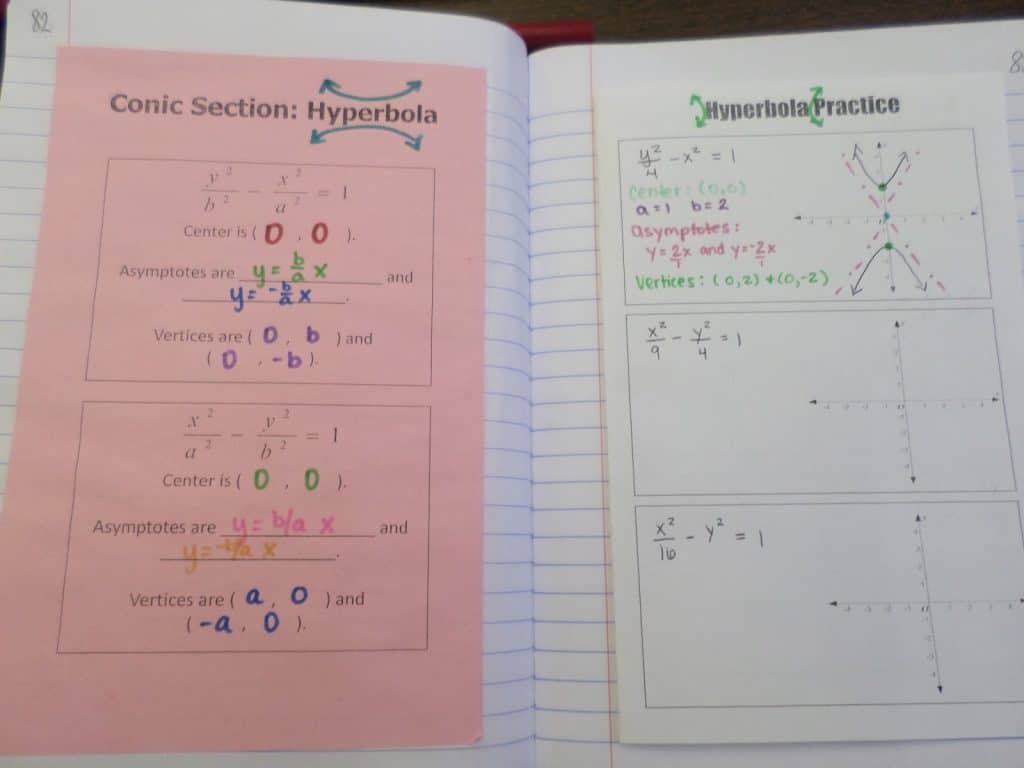 82
Conic Section: Hyperbola
y² / b² - x² / a² = 1
Center is ( 0 , 0 ).
Asymptotes are y = b/a x and
y = -b/a x.
Vertices are ( 0 , b ) and
( 0 , -b ).
x² / a² - y² / b² = 1
Center is ( 0 , 0 ).
Asymptotes are y = b/a x and
y = -b/a x.
Vertices are ( a , 0 ) and
( -a , 0 ).
Hyperbola Practice
y²/4 - x² = 1
center: (0,0)
a=1 b=2
asymptotes:
y = 2/1 x and y = -2/1 x
Vertices: (0,2) + (0,-2)
x²/9 - y²/4 = 1
x²/16 - y² = 1